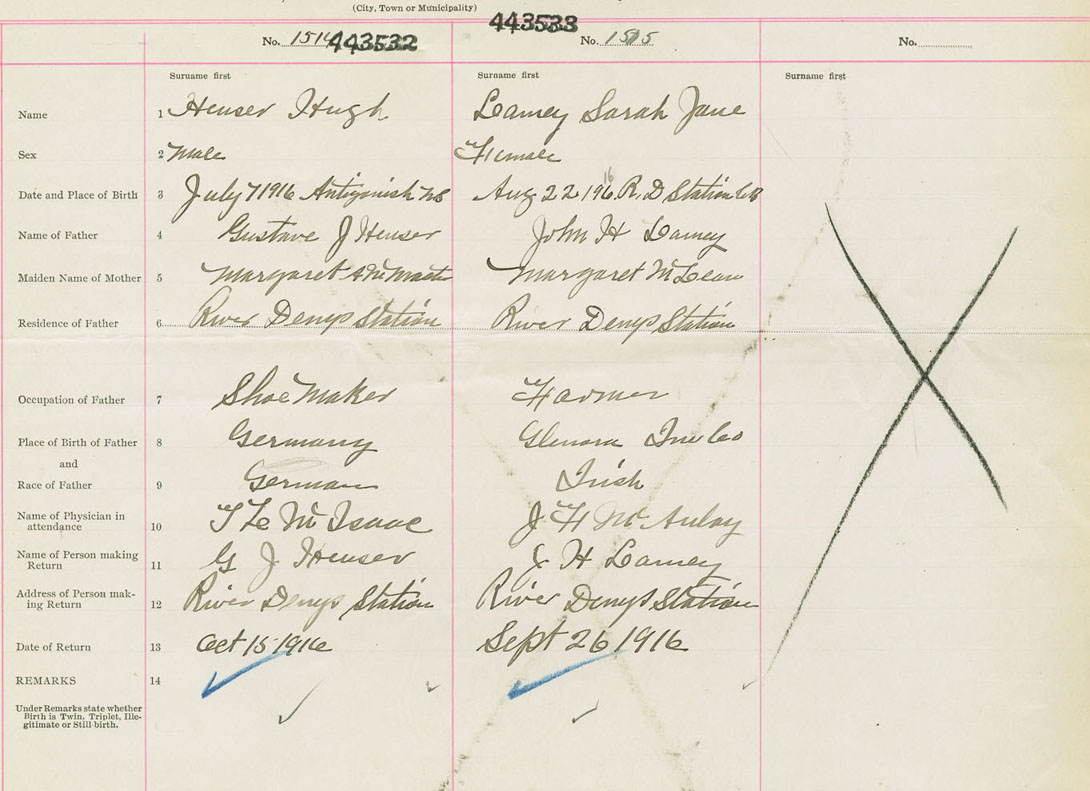 (City, Town or Municipality)
No. 1514 443532 443533 No. 1515 No.
Surname first Surname first Surname first
Name 1 Heuser Hugh Lamey Sarah Jane
Sex 2 Male Female
Date and Place of Birth 3 July 7 1916 Antigonish NS Aug 22 1916 R. D Station CB
Name of Father 4 Gustave J Heuser John H Lamey
Maiden Name of Mother 5 Margaret McMaster Margaret McLean
Residence of Father 6 River Denys Station River Denys Station
Occupation of Father 7 Shoe Maker Farmer
Place of Birth of Father 8 Germany Glenora Inv Co
and
Race of Father 9 German Irish
Name of Physician in
attendance 10 McIsaac J H McAulay
Name of Person making
Return 11 G J Heuser J H Lamey
Address of Person mak-
ing Return 12 River Denys Station River Denys Station
Date of Return 13 Oct 15 1916 Sept 26 1916
REMARKS 14
Under Remarks state whether
Birth is Twin, Triplet, Ille-
gitimate or Still-birth.